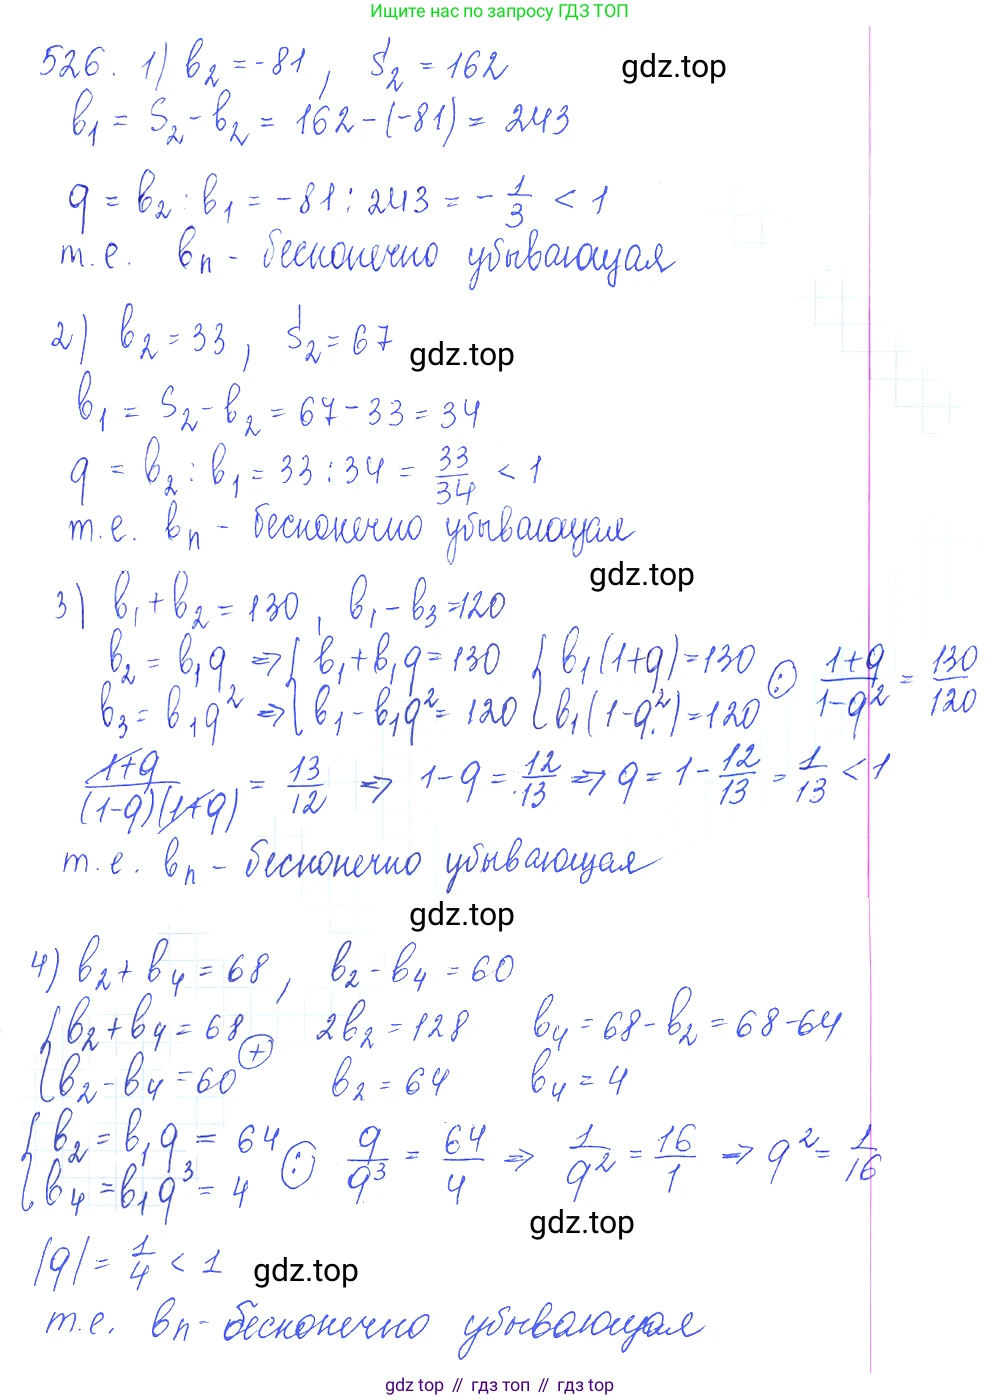 Ищите нас по запросу ГДЗ ТОП
526. 1) b₂ = -81, S₂ = 162 gdz.top
b₁ = S₂ - b₂ = 162 - (-81) = 243
q = b₂ : b₁ = -81 : 243 = - 1/3 < 1
т.е. bₙ - бесконечно убывающая
2) b₂ = 33, S₂ = 67 gdz.top
b₁ = S₂ - b₂ = 67 - 33 = 34
q = b₂ : b₁ = 33 : 34 = 33/34 < 1
т.е. bₙ - бесконечно убывающая
gdz.top
3) b₁ + b₂ = 130, b₁ - b₃ = 120
b₂ = b₁q ⇒ { b₁ + b₁q = 130 { b₁(1+q) = 130 (:) (1+q)/(1-q²) = 130/120
b₃ = b₁q² ⇒ { b₁ - b₁q² = 120 { b₁(1-q²) = 120
(1+q)/((1-q)(1+q)) = 13/12 ⇒ 1 - q = 12/13 ⇒ q = 1 - 12/13 = 1/13 < 1
т.е. bₙ - бесконечно убывающая
gdz.top
4) b₂ + b₄ = 68, b₂ - b₄ = 60
{ b₂ + b₄ = 68 (+) 2b₂ = 128 b₄ = 68 - b₂ = 68 - 64
{ b₂ - b₄ = 60 b₂ = 64 b₄ = 4
{ b₂ = b₁q = 64 (:) q/q³ = 64/4 ⇒ 1/q² = 16/1 ⇒ q² = 1/16
{ b₄ = b₁q³ = 4
gdz.top
|q| = 1/4 < 1 gdz.top
т.е. bₙ - бесконечно убывающая
gdz top // гдз топ // гдз top